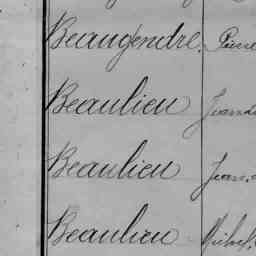 Beaugendre. Pierre
Beaulieu Jean
Beaulieu Jean
Beaulieu Michel